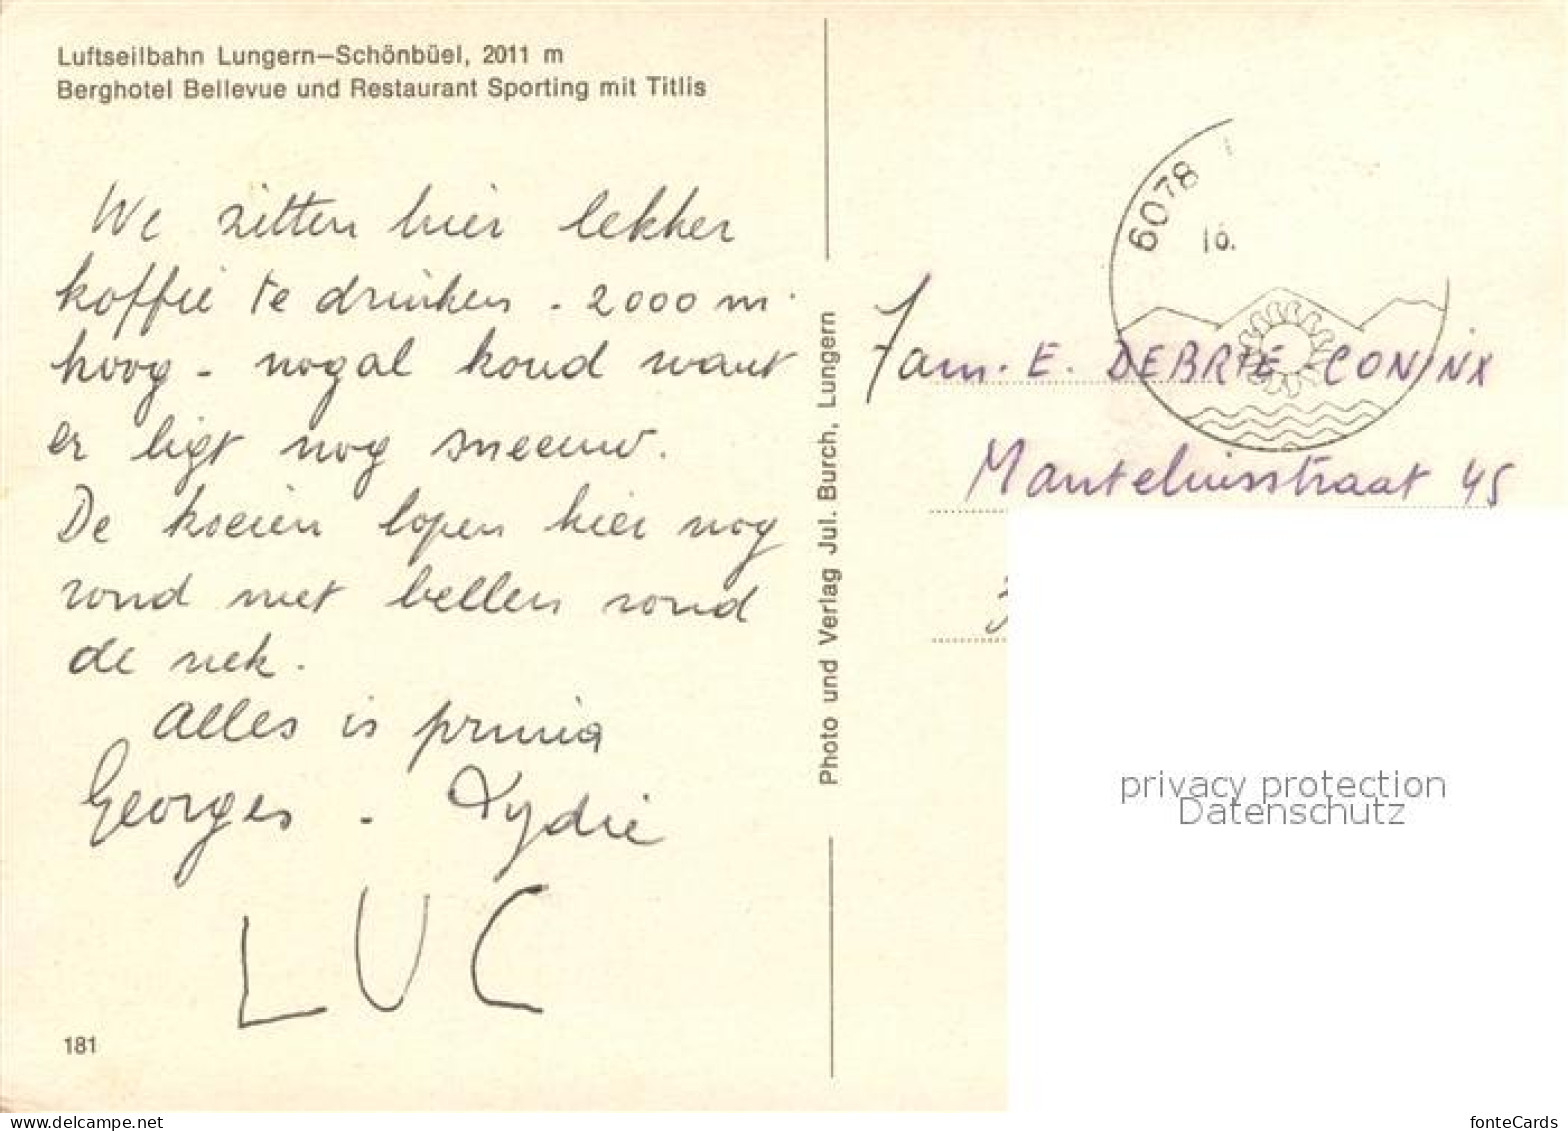 Luftseilbahn Lungern–Schönbüel, 2011 m
Berghotel Bellevue und Restaurant Sporting mit Titlis
We zitten hier lekker
koffie te drinken - 2000 m
hoog - nogal koud want
er ligt nog sneeuw.
De koeien lopen hier nog
rond met bellen rond
de nek.
Alles is prima
Georges - Lydie
LUC
181
Photo und Verlag Jul. Burch, Lungern
6078
16.
Fam. E. DEBRIE-CONINX
Manteliusstraat 45
privacy protection
Datenschutz
www.delcampe.net
fonteCards